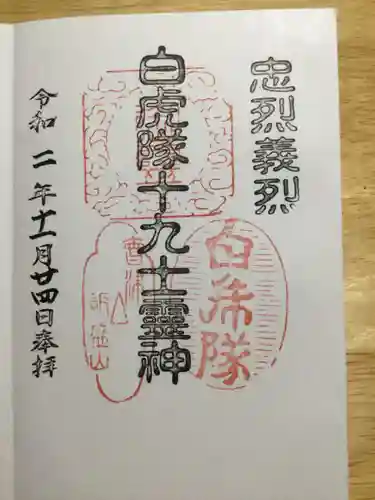 忠烈義烈
白虎隊十九士霊神
白虎隊
會津
飯盛山
令和二年十一月廿四日奉拝